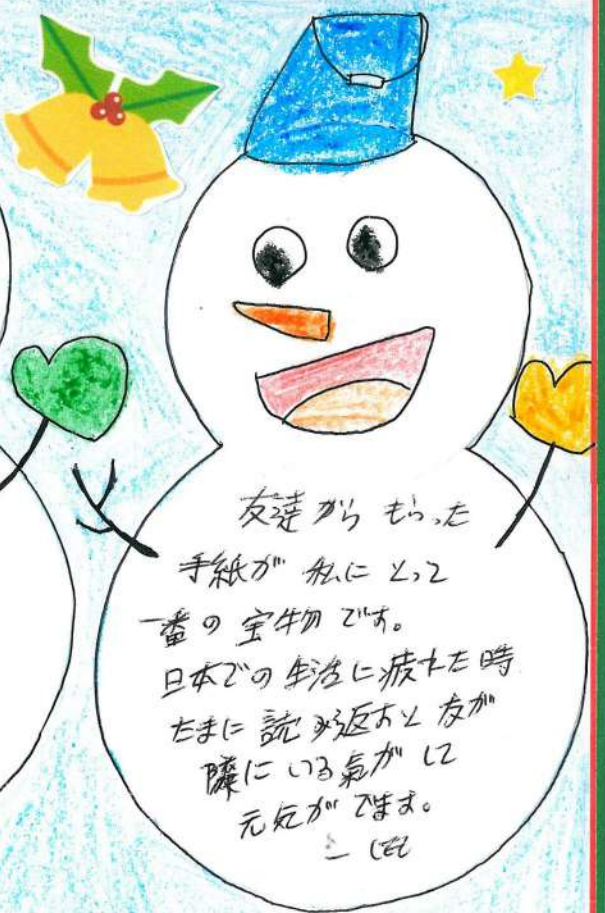 友達から もらった
手紙が 私にとって
一番の 宝物です。
日本での 生活に疲れた時
たまに 読み返すと 友が
隣に いる気がして
元気が でます。